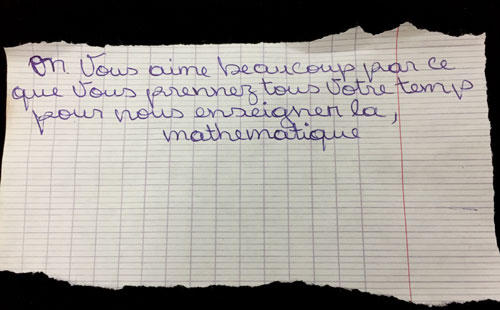 On Vous aime beaucoup par ce
que Vous prennez tous Votre temp
pour nous enseigner la,
mathematique